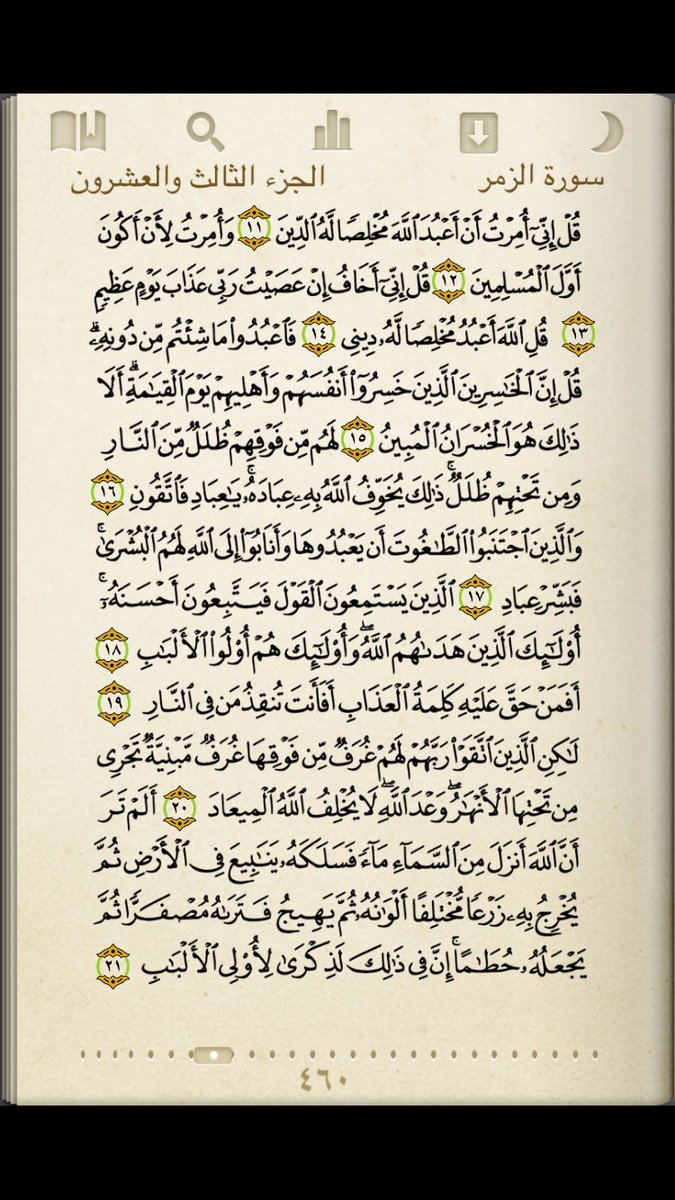 سورة الزمر الجزء الثالث والعشرون
قُلْ إِنِّىٓ أُمِرْتُ أَنْ أَعْبُدَ ٱللَّهَ مُخْلِصًا لَّهُ ٱلدِّينَ ١١ وَأُمِرْتُ لِأَنْ أَكُونَ
أَوَّلَ ٱلْمُسْلِمِينَ ١٢ قُلْ إِنِّىٓ أَخَافُ إِنْ عَصَيْتُ رَبِّى عَذَابَ يَوْمٍ عَظِيمٍ
١٣ قُلِ ٱللَّهَ أَعْبُدُ مُخْلِصًا لَّهُۥ دِينِى ١٤ فَٱعْبُدُوا۟ مَا شِئْتُم مِّن دُونِهِۦۗ
قُلْ إِنَّ ٱلْخَـٰسِرِينَ ٱلَّذِينَ خَسِرُوٓا۟ أَنفُسَهُمْ وَأَهْلِيهِمْ يَوْمَ ٱلْقِيَـٰمَةِۗ أَلَا
ذَٰلِكَ هُوَ ٱلْخُسْرَانُ ٱلْمُبِينُ ١٥ لَهُم مِّن فَوْقِهِمْ ظُلَلٌ مِّنَ ٱلنَّارِ
وَمِن تَحْتِهِمْ ظُلَلٌۚ ذَٰلِكَ يُخَوِّفُ ٱللَّهُ بِهِۦ عِبَادَهُۥۚ يَـٰعِبَادِ فَٱتَّقُونِ ١٦
وَٱلَّذِينَ ٱجْتَنَبُوا۟ ٱلطَّـٰغُوتَ أَن يَعْبُدُوهَا وَأَنَابُوٓا۟ إِلَى ٱللَّهِ لَهُمُ ٱلْبُشْرَىٰۚ
فَبَشِّرْ عِبَادِ ١٧ ٱلَّذِينَ يَسْتَمِعُونَ ٱلْقَوْلَ فَيَتَّبِعُونَ أَحْسَنَهُۥٓۚ
أُو۟لَـٰٓئِكَ ٱلَّذِينَ هَدَىٰهُمُ ٱللَّهُۖ وَأُو۟لَـٰٓئِكَ هُمْ أُو۟لُوا۟ ٱلْأَلْبَـٰبِ ١٨
أَفَمَنْ حَقَّ عَلَيْهِ كَلِمَةُ ٱلْعَذَابِ أَفَأَنتَ تُنقِذُ مَن فِى ٱلنَّارِ ١٩
لَـٰكِنِ ٱلَّذِينَ ٱتَّقَوْا۟ رَبَّهُمْ لَهُمْ غُرَفٌ مِّن فَوْقِهَا غُرَفٌ مَّبْنِيَّةٌ تَجْرِى
مِن تَحْتِهَا ٱلْأَنْهَـٰرُۖ وَعْدَ ٱللَّهِۖ لَا يُخْلِفُ ٱللَّهُ ٱلْمِيعَادَ ٢٠ أَلَمْ تَرَ
أَنَّ ٱللَّهَ أَنزَلَ مِنَ ٱلسَّمَآءِ مَآءً فَسَلَكَهُۥ يَنَـٰبِيعَ فِى ٱلْأَرْضِ ثُمَّ
يُخْرِجُ بِهِۦ زَرْعًا مُّخْتَلِفًا أَلْوَٰنُهُۥ ثُمَّ يَهِيجُ فَتَرَىٰهُ مُصْفَرًّا ثُمَّ
يَجْعَلُهُۥ حُطَـٰمًاۚ إِنَّ فِى ذَٰلِكَ لَذِكْرَىٰ لِأُو۟لِى ٱلْأَلْبَـٰبِ ٢١
٤٦٠